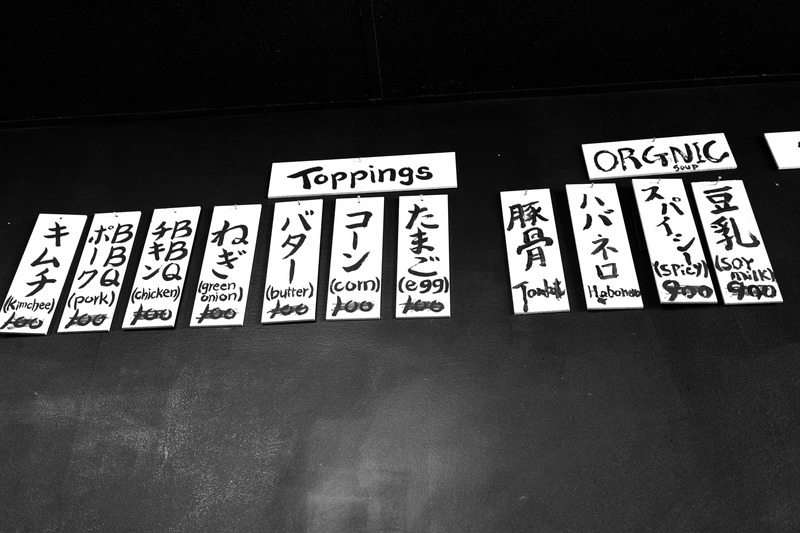 Toppings
キムチ
(kimchee)
100
BBQ
ポーク
(pork)
100
BBQ
チキン
(chicken)
100
ねぎ
(green
onion)
100
バター
(butter)
100
コーン
(corn)
100
たまご
(egg)
100
ORGNIC
soup
豚骨
ハバネロ
スパイシー
(spicy)
900
豆乳
(SOY
milk)
900